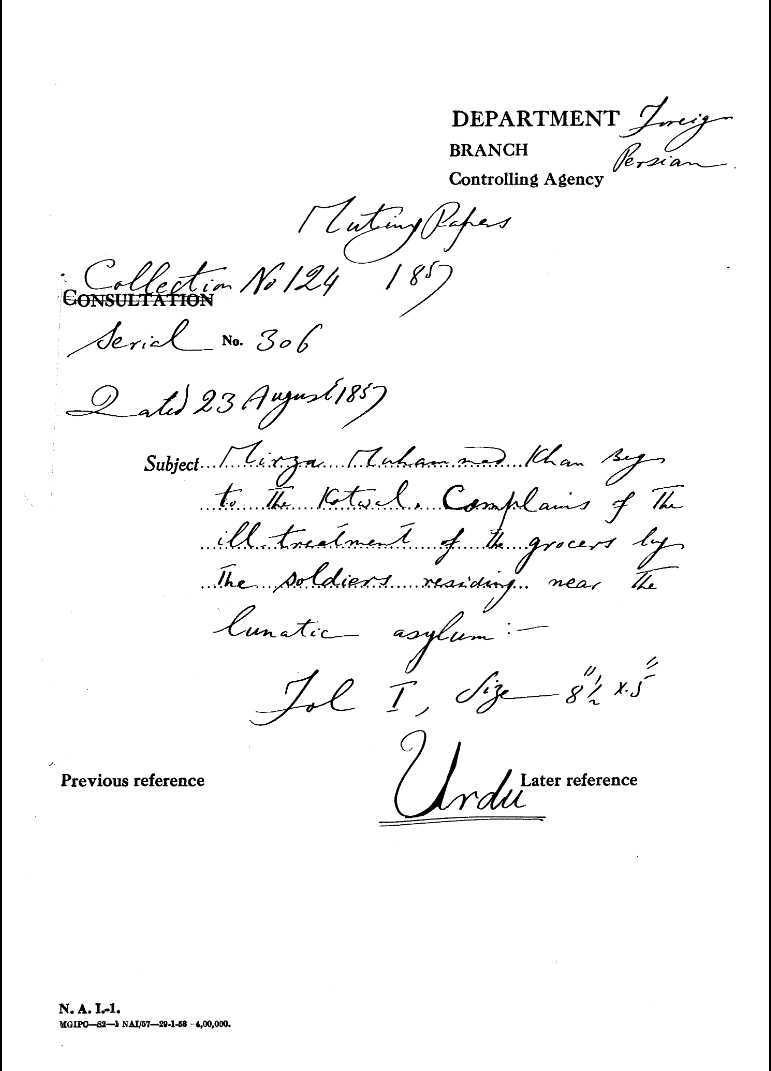 DEPARTMENT Foreign
BRANCH Persian
Controlling Agency
Mutiny Papers
Collection No 124 1857
CONSULTATION
Serial No. 306
Dated 23 August 1857
Subject Mirza Muhammad Khan Beg
to the Kotwal. Complains of the
ill-treatment of the grocers by
the soldiers residing near the
lunatic asylum:—
Fol I, Size 8½" x 5"
Previous reference Urdu Later reference
N. A. I.-1.
MGIPC—S2—1 NAI/57—29-1-58—4,00,000.